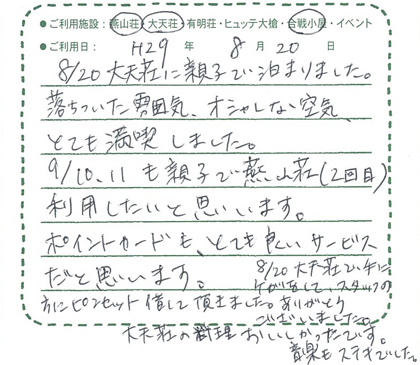 ●ご利用施設:燕山荘・大天荘・有明荘・ヒュッテ大槍・合戦小屋・イベント
●ご利用日: H29 年 8 月 20 日
8/20 大天荘に親子で泊まりました。
落ちついた雰囲気、オシャレな空気、
とても満喫しました。
9/10、11も親子で燕山荘(2回目)
利用したいと思います。
ポイントカードも、とても良いサービス
だと思います。
8/20 大天荘で手に
ケガをして、スタッフの
方にピンセット借して頂きました。ありがとう
ございいました。
大天荘の料理おいしかったです。
音楽もステキでした。